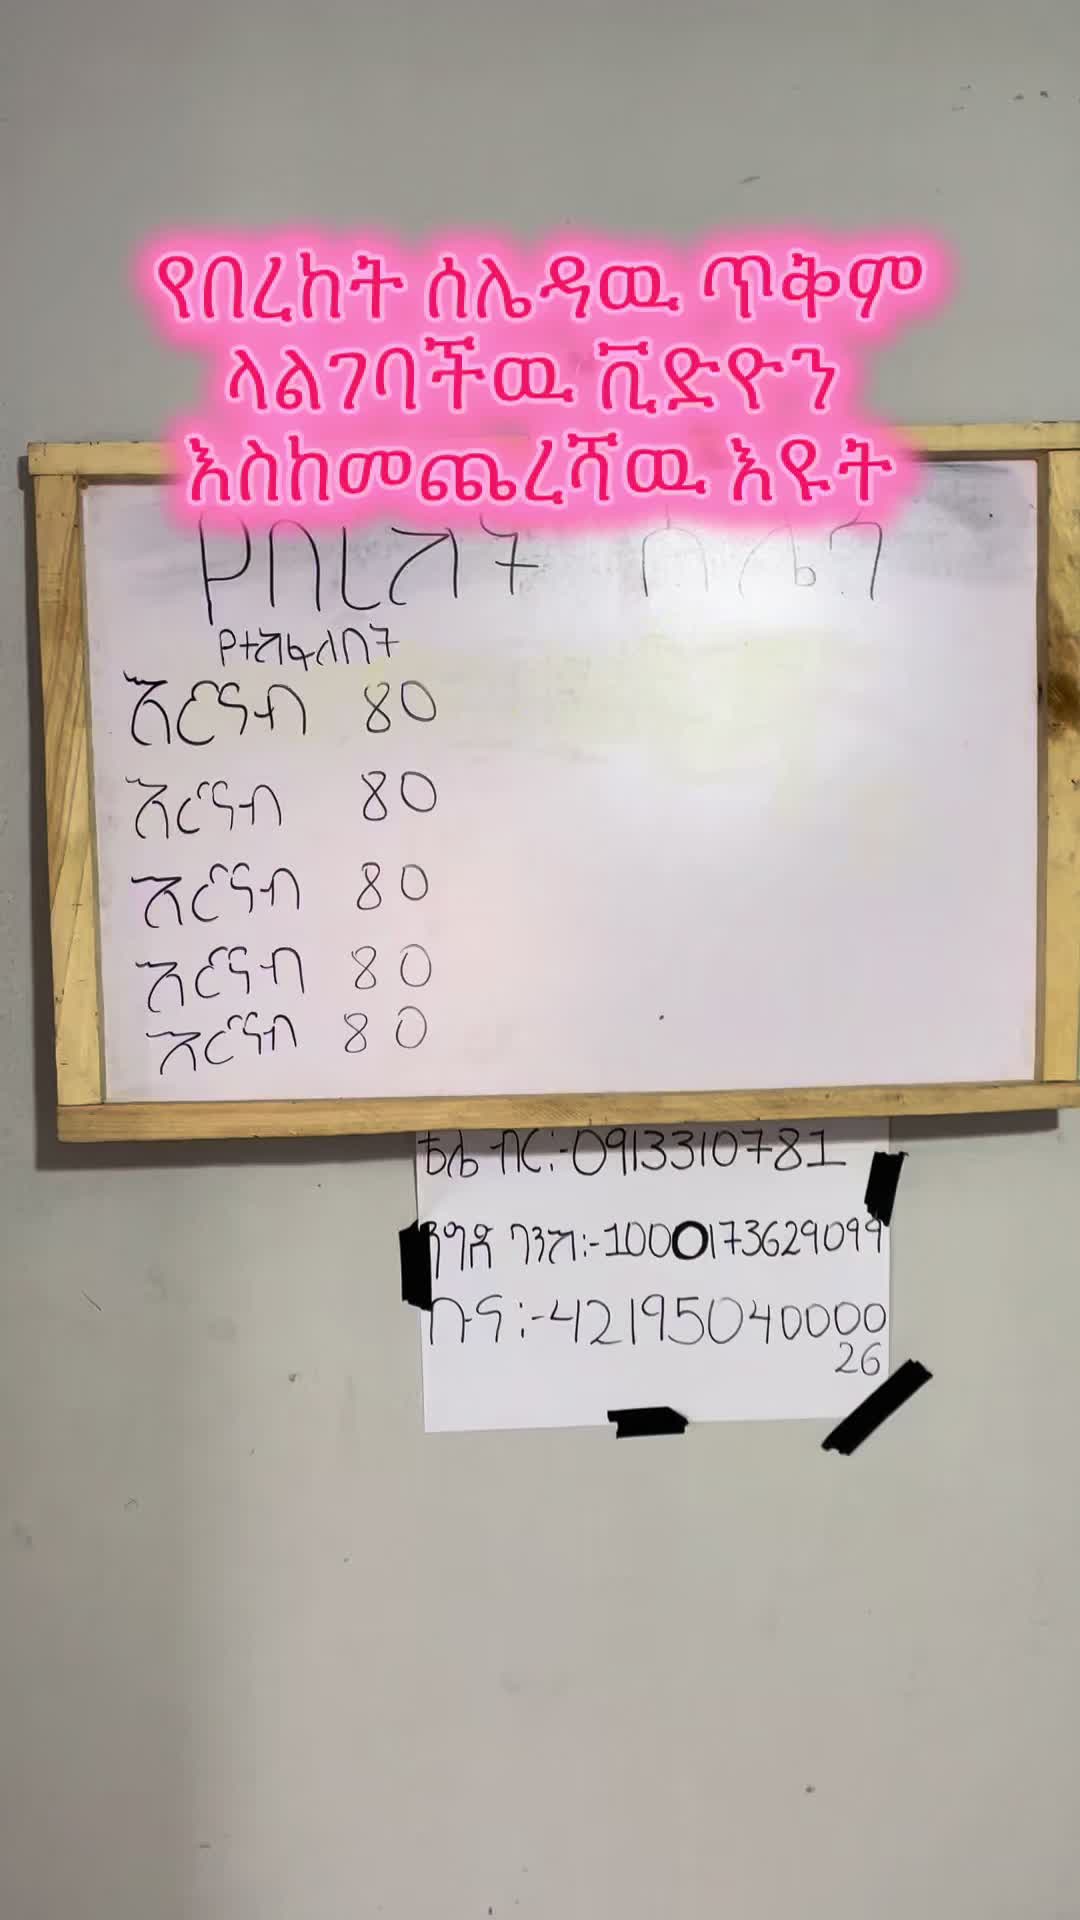 የበረከት ሰሌዳዉ ጥቅም
ላልገባችዉ ቪድዮን
እስከመጨረሻዉ እዩት
የበረከት ሰሌዳ
የተከፋፈለበት
እርናብ 80
እርናብ 80
እርናብ 80
እርናብ 80
እርናብ 80
ቴሌ ብር:-0913310781
ንግድ ባንክ:-1000173629099
ቡና:-42195040000
26